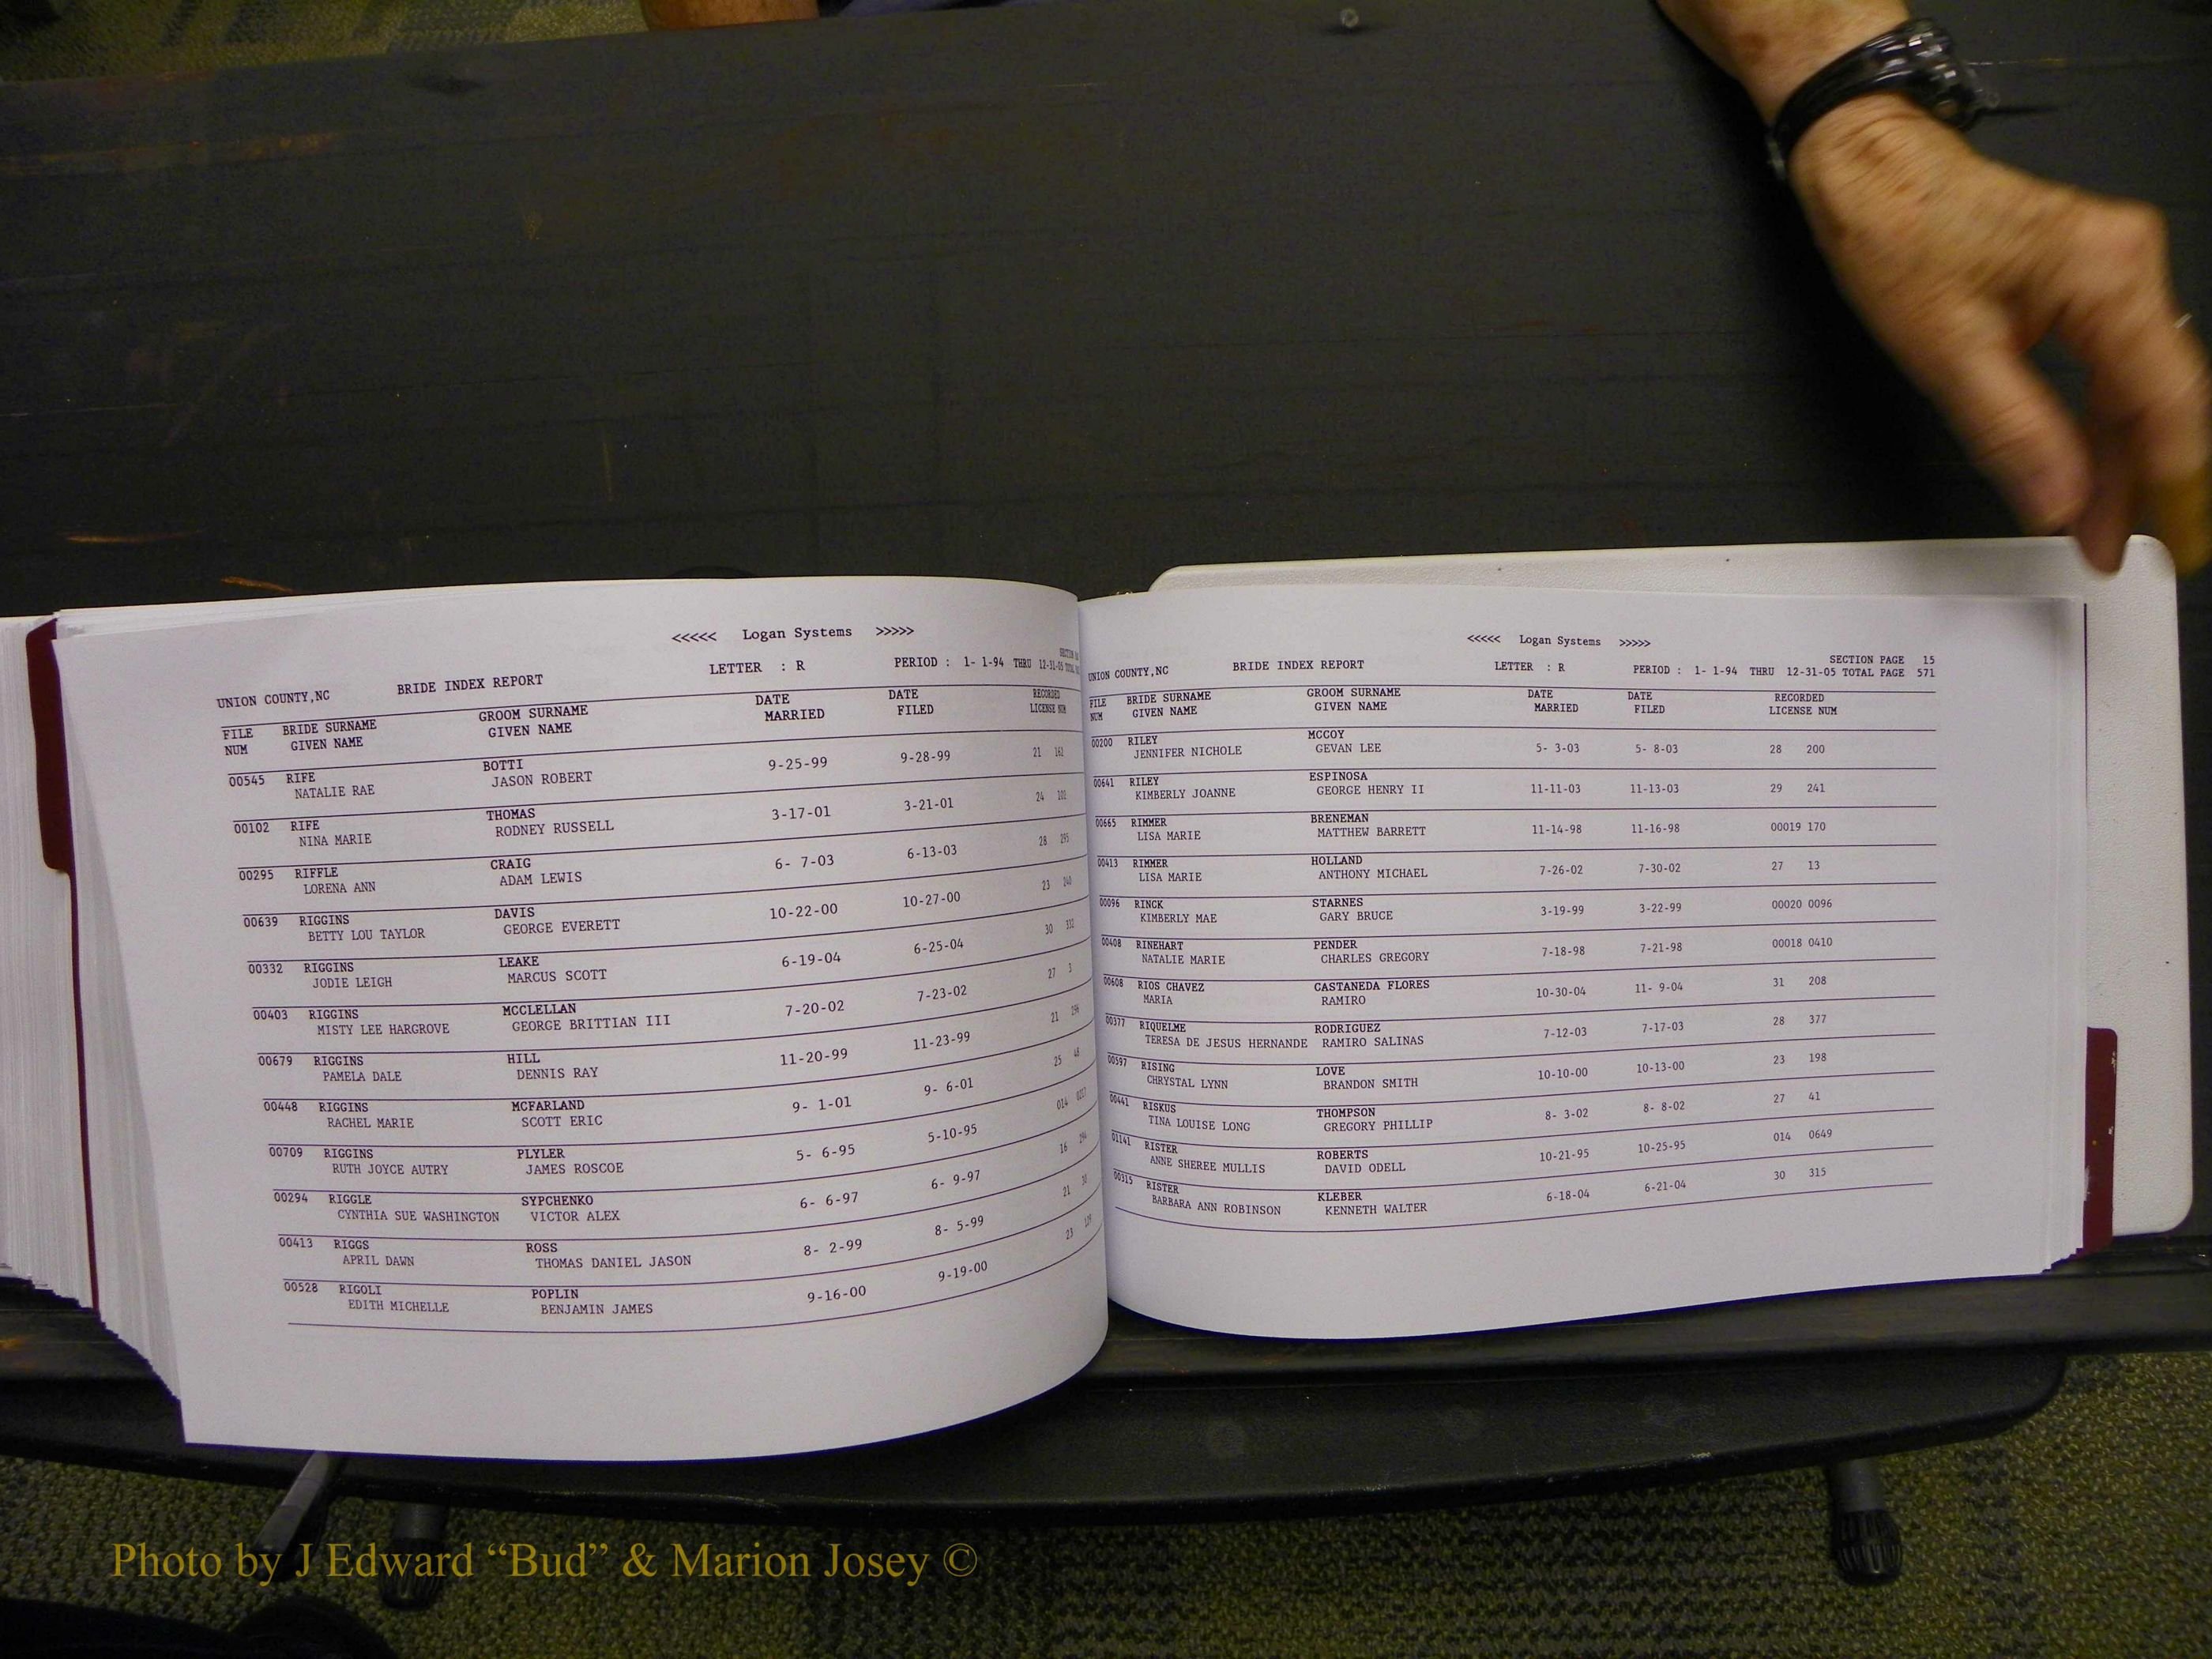 <<<<< Logan Systems >>>>>
UNION COUNTY,NC BRIDE INDEX REPORT LETTER : R PERIOD : 1- 1-94 THRU 12-31-05 TOTAL
FILE BRIDE SURNAME GROOM SURNAME DATE DATE RECORDED
NUM GIVEN NAME GIVEN NAME MARRIED FILED LICENSE NUM
00545 RIFE BOTTI 9-25-99 9-28-99 21 162
NATALIE RAE JASON ROBERT
00102 RIFE THOMAS 3-17-01 3-21-01 24 102
NINA MARIE RODNEY RUSSELL
00295 RIFFLE CRAIG 6- 7-03 6-13-03 28 295
LORENA ANN ADAM LEWIS
00639 RIGGINS DAVIS 10-22-00 10-27-00 23 240
BETTY LOU TAYLOR GEORGE EVERETT
00332 RIGGINS LEAKE 6-19-04 6-25-04 30 332
JODIE LEIGH MARCUS SCOTT
00403 RIGGINS MCCLELLAN 7-20-02 7-23-02 27 3
MISTY LEE HARGROVE GEORGE BRITTIAN III
00679 RIGGINS HILL 11-20-99 11-23-99 21 296
PAMELA DALE DENNIS RAY
00448 RIGGINS MCFARLAND 9- 1-01 9- 6-01 25 48
RACHEL MARIE SCOTT ERIC
00709 RIGGINS PLYLER 5- 6-95 5-10-95 014
RUTH JOYCE AUTRY JAMES ROSCOE
00294 RIGGLE SYPCHENKO 6- 6-97 6- 9-97 16 294
CYNTHIA SUE WASHINGTON VICTOR ALEX
00413 RIGGS ROSS 8- 2-99 8- 5-99 21 30
APRIL DAWN THOMAS DANIEL JASON
00528 RIGOLI POPLIN 9-16-00 9-19-00 23 129
EDITH MICHELLE BENJAMIN JAMES
<<<<< Logan Systems >>>>>
SECTION PAGE 15
UNION COUNTY,NC BRIDE INDEX REPORT LETTER : R PERIOD : 1- 1-94 THRU 12-31-05 TOTAL PAGE 571
FILE BRIDE SURNAME GROOM SURNAME DATE DATE RECORDED
NUM GIVEN NAME GIVEN NAME MARRIED FILED LICENSE NUM
00200 RILEY MCCOY 5- 3-03 5- 8-03 28 200
JENNIFER NICHOLE GEVAN LEE
00641 RILEY ESPINOSA 11-11-03 11-13-03 29 241
KIMBERLY JOANNE GEORGE HENRY II
00665 RIMMER BRENEMAN 11-14-98 11-16-98 00019 170
LISA MARIE MATTHEW BARRETT
00413 RIMMER HOLLAND 7-26-02 7-30-02 27 13
LISA MARIE ANTHONY MICHAEL
00096 RINCK STARNES 3-19-99 3-22-99 00020 0096
KIMBERLY MAE GARY BRUCE
00408 RINEHART PENDER 7-18-98 7-21-98 00018 0410
NATALIE MARIE CHARLES GREGORY
00608 RIOS CHAVEZ CASTANEDA FLORES 10-30-04 11- 9-04 31 208
MARIA RAMIRO
00377 RIQUELME RODRIGUEZ 7-12-03 7-17-03 28 377
TERESA DE JESUS HERNANDE RAMIRO SALINAS
00597 RISING LOVE 10-10-00 10-13-00 23 198
CHRYSTAL LYNN BRANDON SMITH
00441 RISKUS THOMPSON 8- 3-02 8- 8-02 27 41
TINA LOUISE LONG GREGORY PHILLIP
01141 RISTER ROBERTS 10-21-95 10-25-95 014 0649
ANNE SHEREE MULLIS DAVID ODELL
00315 RISTER KLEBER 6-18-04 6-21-04 30 315
BARBARA ANN ROBINSON KENNETH WALTER
Photo by J Edward “Bud” & Marion Josey ©